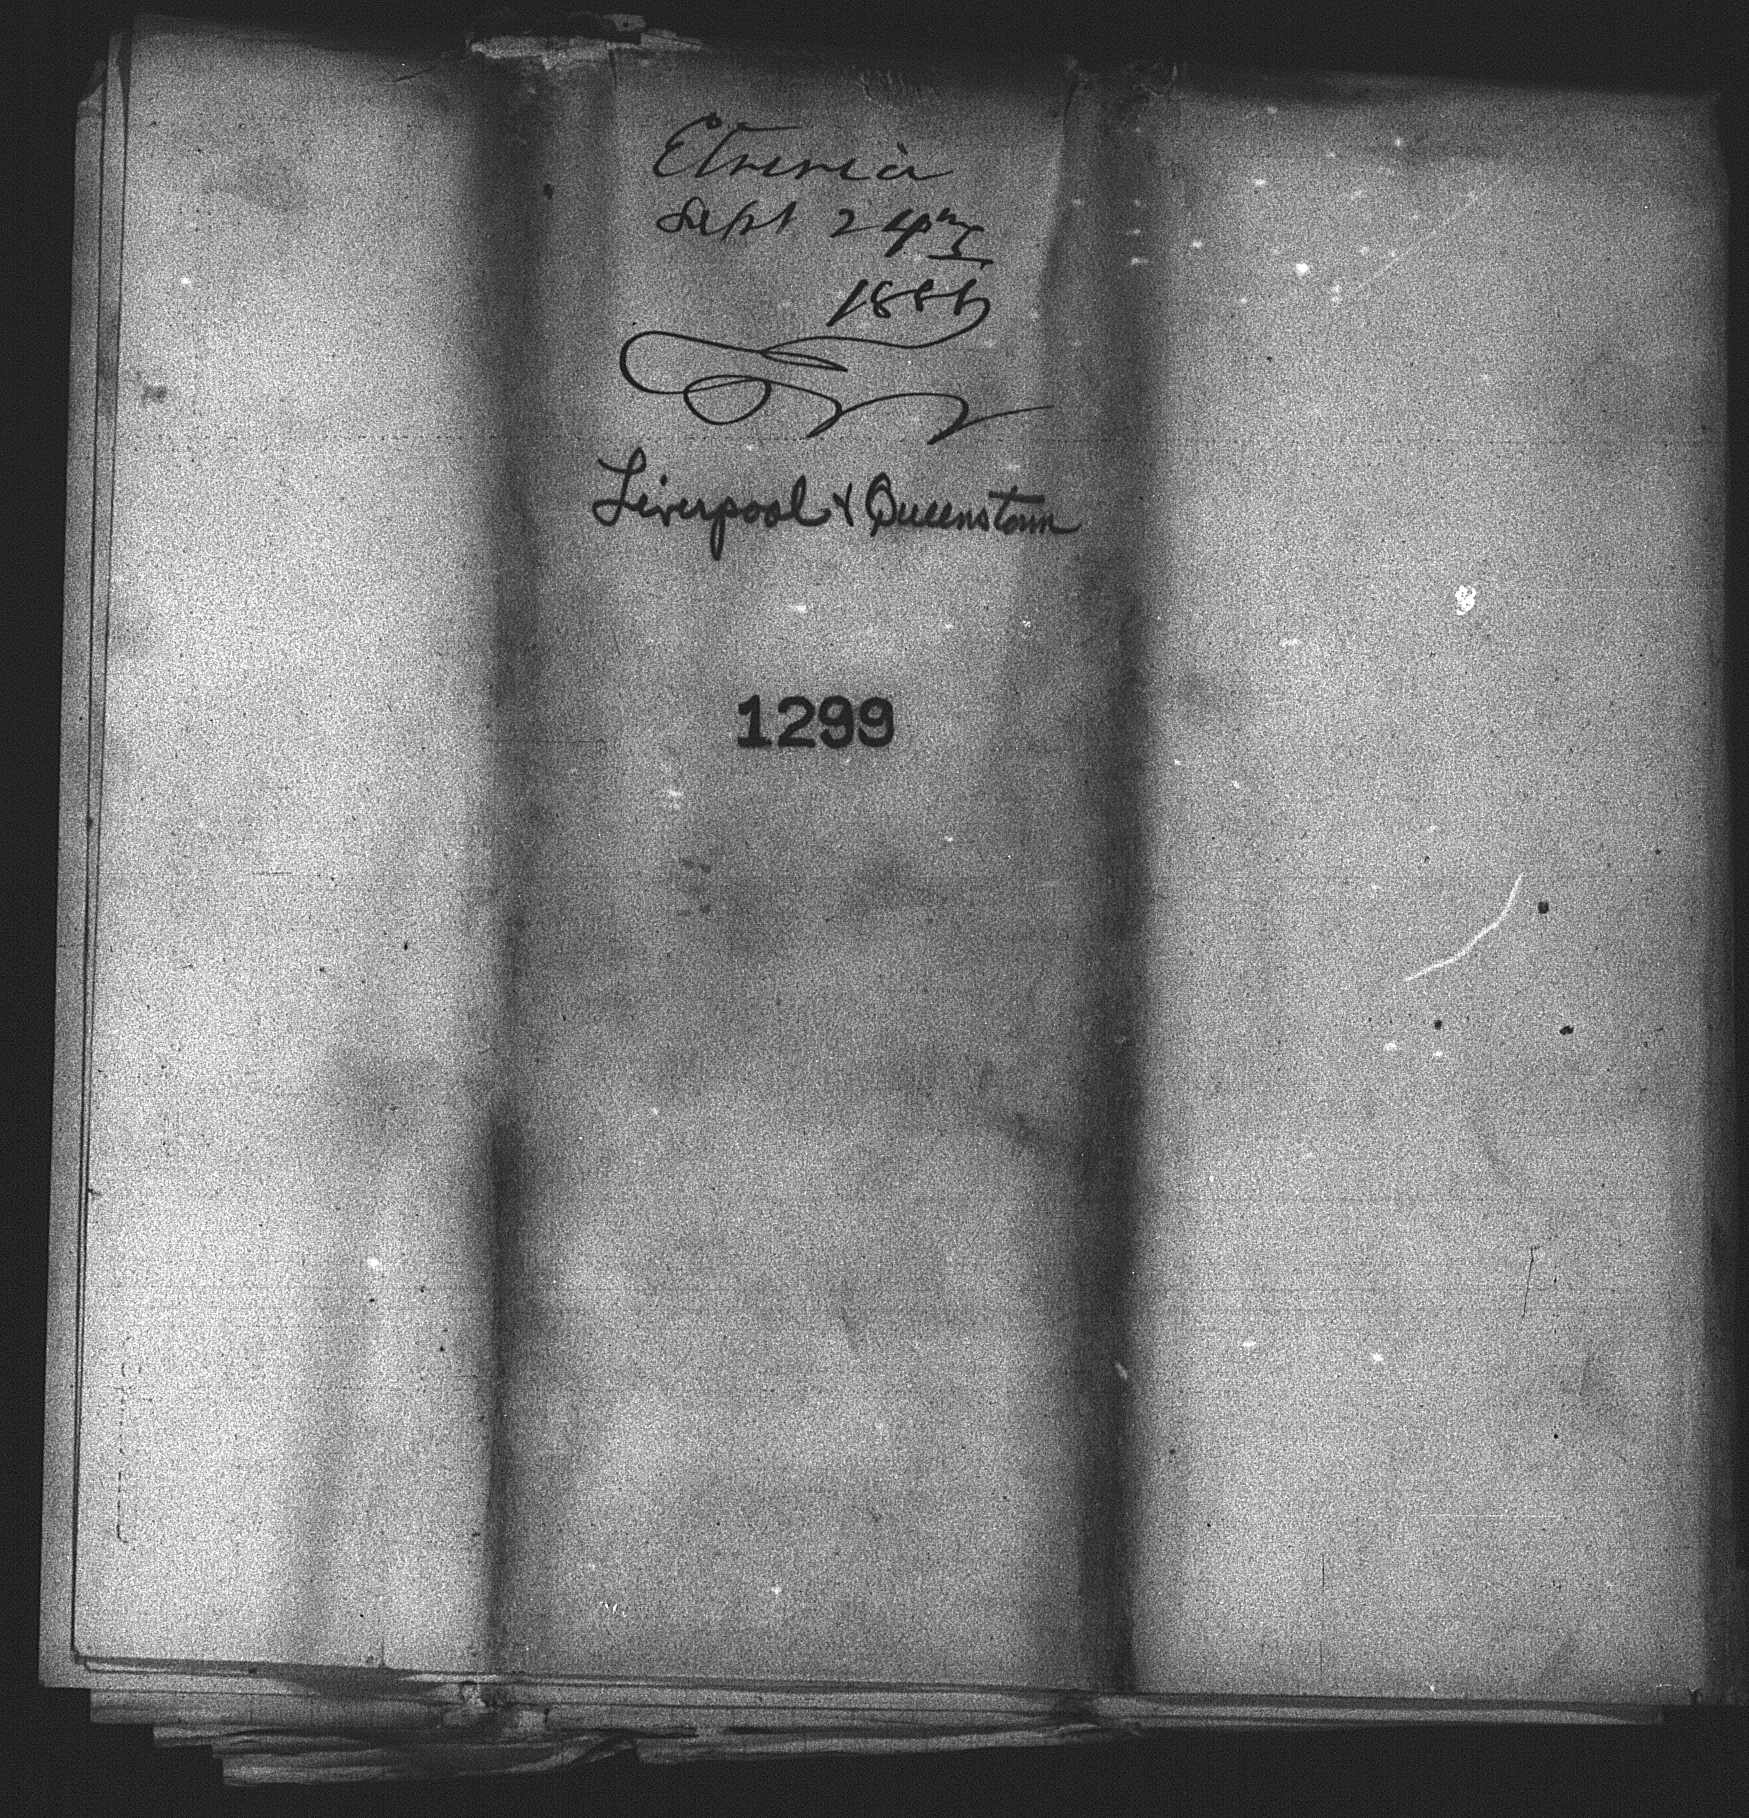 Etruria
Sept 24th
1886
Liverpool & Queenstown
1299